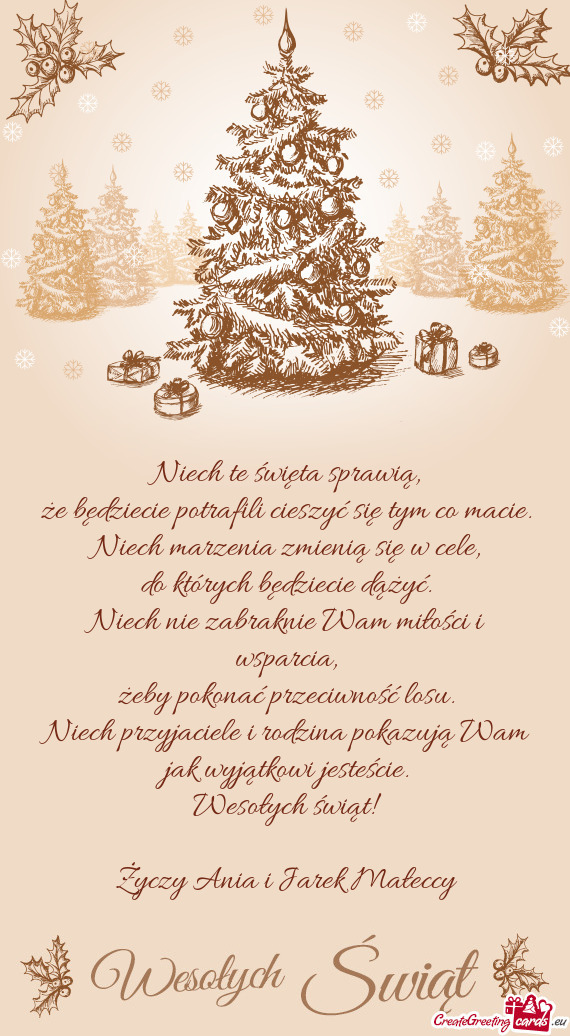 Niech te święta sprawią,
że będziecie potrafili cieszyć się tym co macie.
Niech marzenia zmienią się w cele,
do których będziecie dążyć.
Niech nie zabraknie Wam miłości i
wsparcia,
żeby pokonać przeciwność losu.
Niech przyjaciele i rodzina pokazują Wam
jak wyjątkowi jesteście.
Wesołych świąt!
Życzy Ania i Jarek Małeccy
Wesołych Świąt
CreateGreetingcards.eu